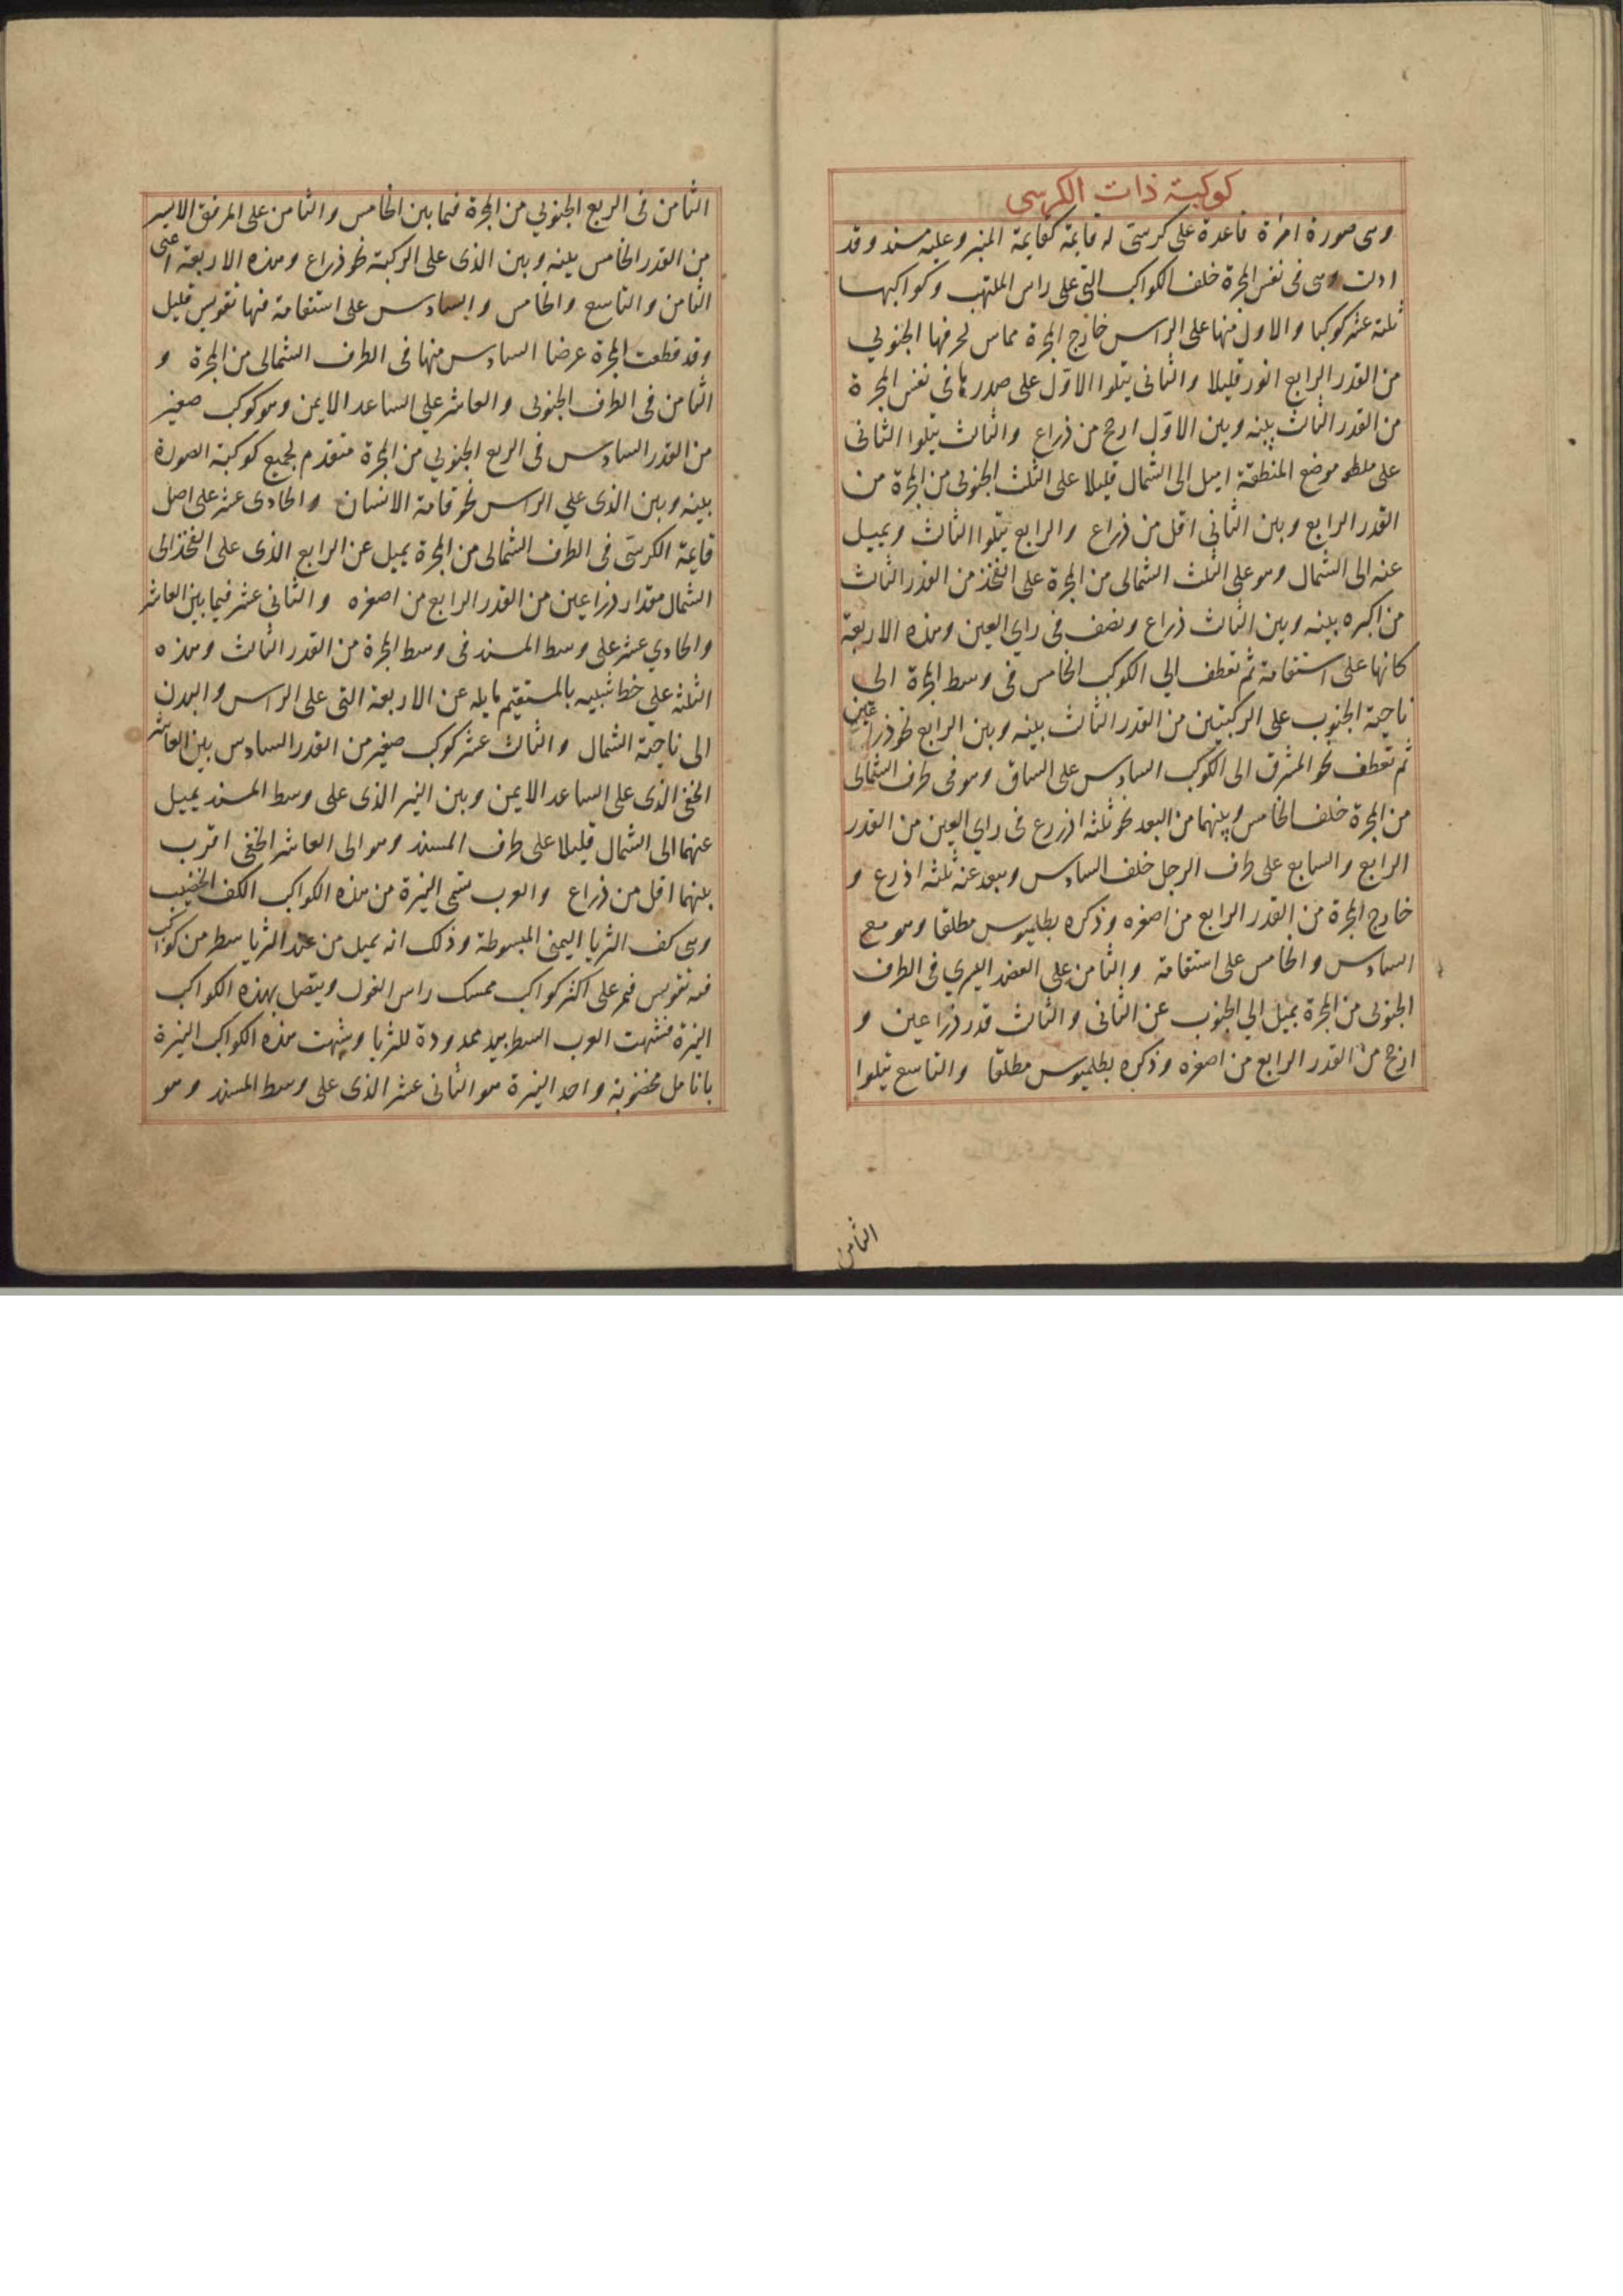 كوكبة ذات الكرسي
وهى صورة امراة قاعدة على كرسى له قايمة كقايمة المنبر وعليه مسند وقد
ادلت وهى فى نفس المجرة خلف الكواكب التى على راس الملتهب وكواكبها
ثلثة عشر كوكبا والاول منها على الراس خارج المجرة مماس لحرفها الجنوبي
من القدر الرابع انور قليلا والثانى يتلوا الاوّل على صدرها فى نفس المجرة
من القدر الثالث بينه وبين الاوّل ارجح من ذراع والثالث يتلوا الثانى
على موضع المنطقة اميل الى الشمال قليلا على الثلث الجنوبى من المجرة من
القدر الرابع وبين الثاني اقل من ذراع والرابع يتلوا الثالث ويميل
عنه الى الشمال وهو على الثلث الشمالى من المجرة على الفخذ من القدر الثالث
من اكبره بينه وبين الثالث ذراع ونصف فى راي العين وهذه الاربعة
كانها على استقامة ثم تعطف الي الكوكب الخامس فى وسط المجرة الى
ناحية الجنوب على الركبتين من القدر الثالث بينه وبين الرابع نحو ذراعين
ثم تعطف نحو المشرق الى الكوكب السادس على الساق وهو فى طرف الشمالى
من المجرة خلف الخامس وبينهما من البعد نحو ثلثة اذرع فى راي العين من القدر
الرابع والسابع على طرف الرجل خلف السادس وبعد عنه ثلثة اذرع و
خارج المجرة من القدر الرابع من اصغره وذكره بطلميوس مطلقا وهو مع
السادس والخامس على استقامة والثامن على العضد اليسري فى الطرف
الجنوبى من المجرة يميل الي الجنوب عن الثانى والثالث قدر ذراعين و
ارجح من القدر الرابع من اصغره وذكره بطلميوس مطلقا والتاسع يتلوا
الثامن
الثامن فى الربع الجنوبي من المجرة فيما بين الخامس والثامن على المرفق الايسر
من القدر الخامس بينه وبين الذى على الركبة نحو ذراع وهذه الاربعة اعنى
الثامن والتاسع والخامس والسادس على استقامة فيها تقويس قليل
وقد قطعت المجرة عرضا السادس منها فى الطرف الشمالى من المجرة و
الثامن فى الطرف الجنوبى والعاشر على الساعد الايمن وهو كوكب صغير
من القدر السادس فى الربع الجنوبي من المجرة متقدم لجميع كوكبة الصورة
بينه وبين الذى علي الراس نحو قامة الانسان والحادى عشر على اصل
قايمة الكرسى فى الطرف الشمالى من المجرة يميل عن الرابع الذى على الفخذ الى
الشمال مقدار ذراعين من القدر الرابع من اصغره والثانى عشر فيما بين العاشر
والحادي عشر على وسط المسند فى وسط المجرة من القدر الثالث وهذه
الثلثة على خط شبيه بالمستقيم مايله عن الاربعة التى على الراس والبدن
الى ناحية الشمال والثالث عشر كوكب صغير من القدر السادس بين العاشر
الخفى الذى على الساعد الايمن وبين النير الذى على وسط المسند يميل
عنهما الى الشمال قليلا على طرف المسند وهو الى العاشر الخفى اقرب
بينهما اقل من ذراع والعرب تسمى النيرة من هذه الكواكب الكف الخضيب
وهى كف الثريا اليمنى المبسوطة وذلك انه يميل من عند الثريا سطر من كواكب
فيه تقويس فيمر على اكثر كواكب ممسك راس الغول ويتصل بهذه الكواكب
النيرة فشبهت العرب السطر بيد ممدودة للثريا وشبهت هذه الكواكب النيرة
بانامل مخضوبة واحد النيرة هو الثانى عشر الذى على وسط المسند وهو